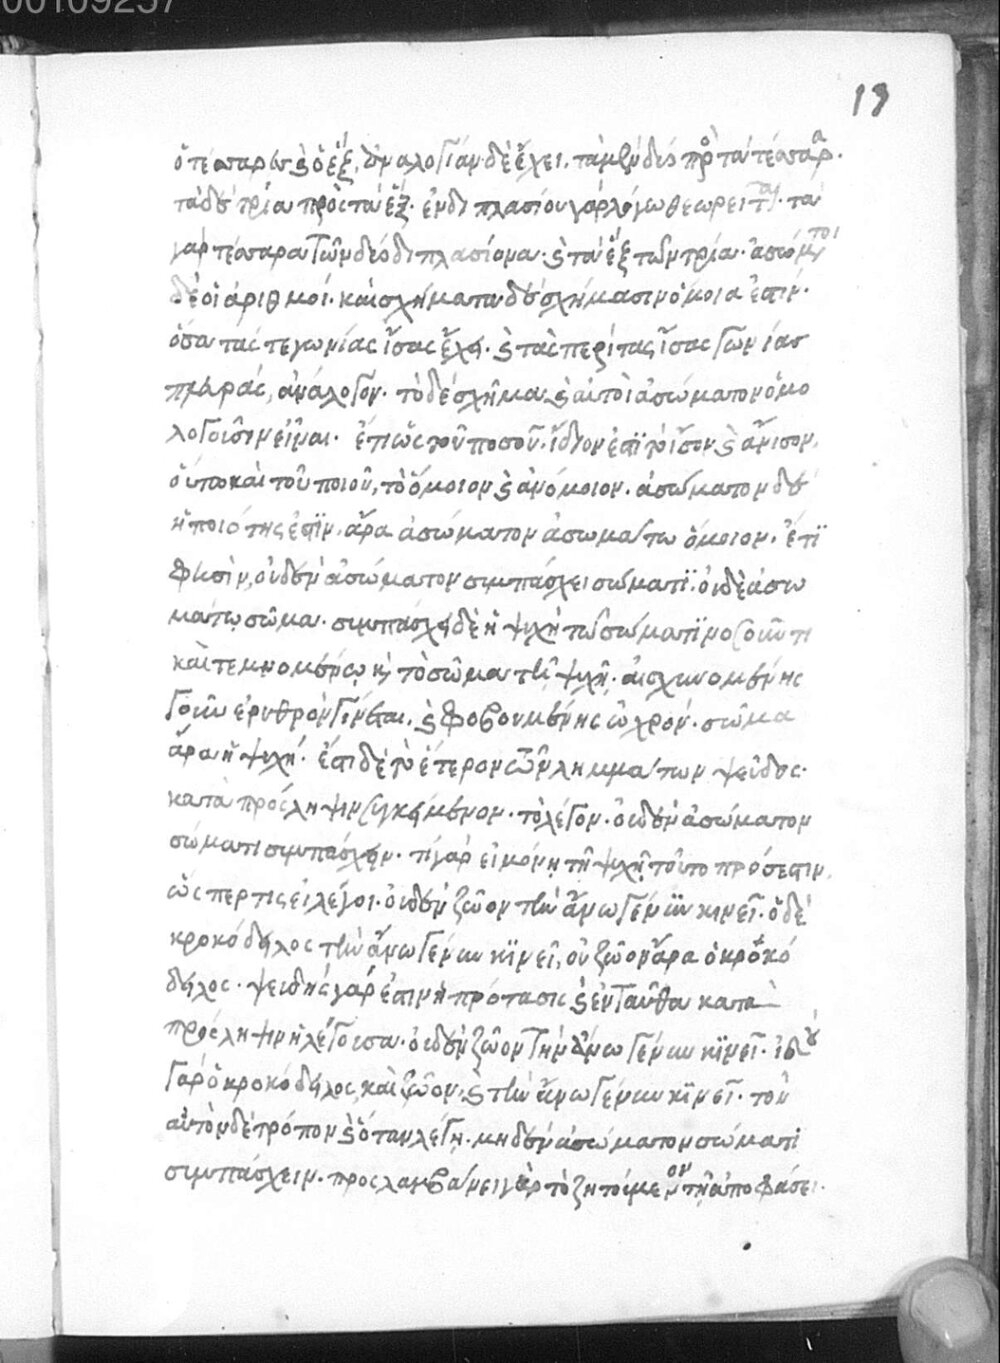 00109257
19
ὁ τέσσαρις καὶ ὁ ἕξ, ἀναλογίαν δὲ ἔχει. τὰ μὲν δύο πρὸς τὰ τέσσαρα.
τὰ δὲ τρία πρὸς τὰ ἕξ. ἐν διπλασίονι γὰρ λόγω θεωρεῖται. τὰ
γὰρ τέσσαρα τῶν δύο διπλασίονα. καὶ τὰ ἕξ τῶν τρία. ἀσώματοι
δὲ οἱ ἀριθμοί. καὶ σχήματα δὲ σχήμασιν ὅμοια ἐστίν.
ὅσα τάς τε γωνίας ἴσας ἔχει. καὶ τὰς περὶ τὰς ἴσας γωνίας
πλευράς, ἀνάλογον. τὸ δὲ σχῆμα καὶ αὐτοὶ ἀσώματον ὁμο
λογοῦσιν εἶναι. ἔτι ὡς τοῦ ποσοῦ. ἴδιον ἐστὶ τὸ ἴσον καὶ ἄνισον.
οὕτω καὶ τοῦ ποιοῦ, τὸ ὅμοιον καὶ ἀνόμοιον. ἀσώματον δὲ
ἡ ποιότης ἐστὶν. ἄρα ἀσώματον ἀσωμάτω ὅμοιον. ἔτι
φησὶν, οὐδὲν ἀσώματον συμπάσχει σώματι. οὐδὲ ἀσω
μάτω σῶμα. συμπάσχει δὲ ἡ ψυχὴ τῶ σώματι νοσοῦντι
καὶ τεμνομένω καὶ τὸ σῶμα τῆ ψυχῆ. αἰσχυνομένης
γοῦν ἐρυθρὸν γίνεται. καὶ φοβουμένης ὠχρόν. σῶμα
ἄρα ἡ ψυχή. ἔστι δὲ τὸ ἕτερον τῶν λημμάτων ψεῦδος.
κατὰ πρόσληψιν συγκείμενον. τὸ λέγον. οὐδὲν ἀσώματον
σώματι συμπάσχειν. τί γὰρ εἰ μόνη τῆ ψυχῆ τοῦτο πρόσεστιν.
ὥσπερ τις εἰ λέγοι. οὐδὲν ζῶον τὴν ἄνω γένυν κινεῖ. ὁ δὲ
κροκόδειλος τὴν ἄνω γένυν κινεῖ, οὐ ζῶον ἄρα ὁ κροκό
δειλος. ψευδὴς γάρ ἐστιν ἡ πρότασις καὶ ἐνταῦθα κατὰ
πρόσληψιν ἡ λέγουσα. οὐδὲν ζῶον τὴν ἄνω γένυν κινεῖ. ἰδοὺ
γὰρ ὁ κροκόδειλος, καὶ ζῶον, καὶ τὴν ἄνω γένυν κινεῖ. τὸν
αὐτὸν δὲ τρόπον καὶ ὅταν λέγη. μηδὲν ἀσώματον σώματι
συμπάσχειν. προσλαμβάνει γὰρ τὸ ζητούμενον τῆ ἀποφάσει.